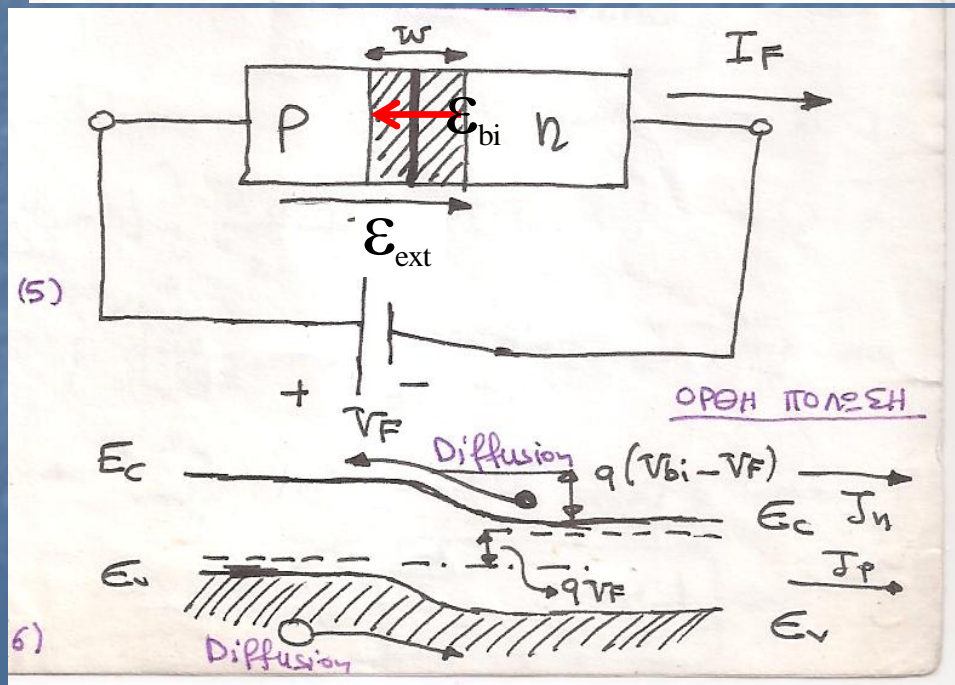 w
I_F
P
ε_bi
n
ε_ext
(5)
+ −
V_F
ΟΡΘΗ ΠΟΛΩΣΗ
Diffusion
E_C
q(V_bi − V_F)
E_C J_n
E_v
qV_F
J_p
E_v
6)
Diffusion